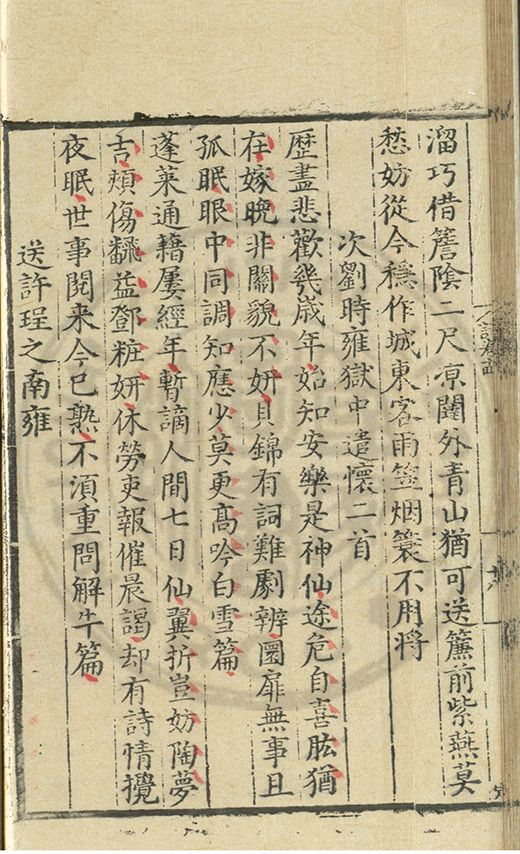 溜巧借簷陰二尺凉闥外青山猶可送簾前紫燕莫
愁妨從今穩作城東客雨笠烟簑不用將
次劉時雍獄中遣懷二首
歷盡悲歡幾歲年始知安樂是神仙途危自喜肱猶
在嫁晚非關貌不妍貝錦有詞難劇辨圜扉無事且
孤眠眼中同調知應少莫更高吟白雪篇
蓬萊通籍屢經年暫謫人間七日仙翼折豈妨陶夢
舌頰傷翻益鄧粧妍休勞吏報催晨謁却有詩情攪
夜眠世事閱来今已熟不湏重問解牛篇
送許珵之南雍